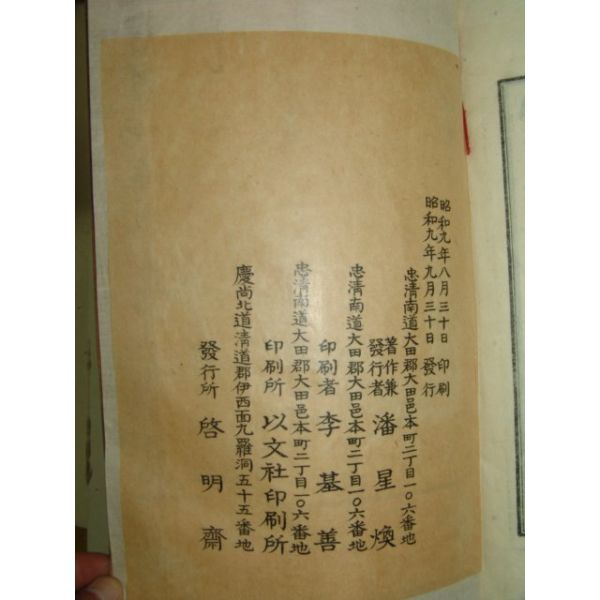 昭和九年八月三十日 印刷
昭和九年九月三十日 發行
忠清南道大田郡大田邑本町二丁目一〇六番地
著作兼發行者 潘星煥
忠清南道大田郡大田邑本町二丁目一〇六番地
印刷者 李基善
忠清南道大田郡大田邑本町二丁目一〇六番地
印刷所 以文社印刷所
慶尚北道清道郡伊西面九羅洞五十五番地
發行所 啓明齋